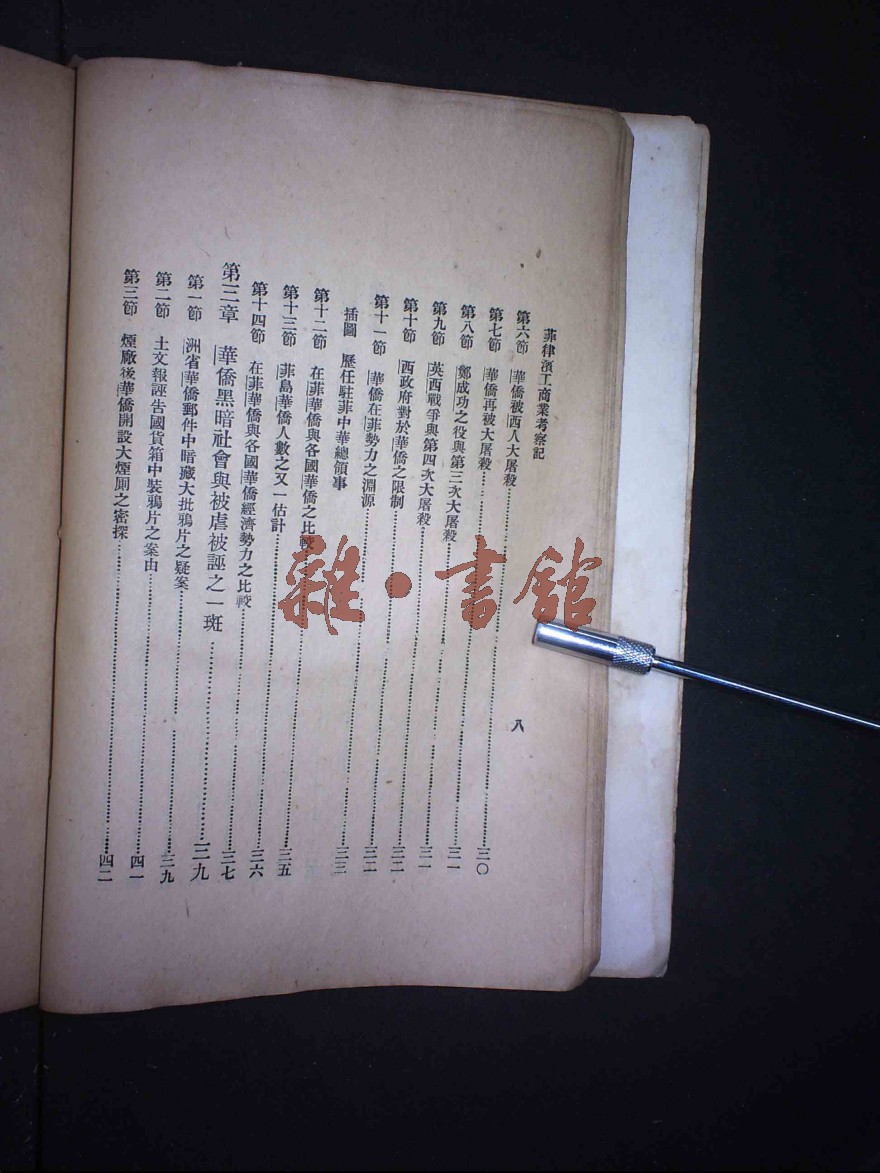 菲律濱工商業考察記
八
第六節 華僑被西人大屠殺……三〇
第七節 華僑再被大屠殺……三一
第八節 鄭成功之役與第三次大屠殺……三一
第九節 英西戰爭與第四次大屠殺……三二
第十節 西政府對於華僑之限制……三二
第十一節 華僑在菲勢力之淵源……三三
插圖 歷任駐菲中華總領事
第十二節 在菲華僑與各國華僑之比較……三五
第十三節 菲島華僑人數之又一估計……三六
第十四節 在菲華僑與各國華僑經濟勢力之比較……三七
第三章 華僑黑暗社會與被虐被誣之一斑……三九
第一節 洲省華僑郵件中暗藏大批鴉片之疑案……三九
第二節 土文報誣告國貨箱中裝鴉片之案由……四一
第三節 煙廠後華僑開設大煙厠之密探……四二
雜·書館